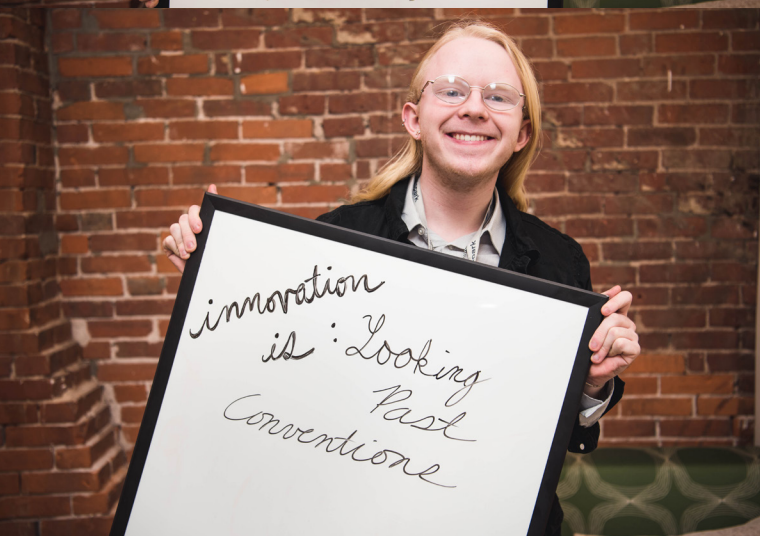 innovation
is : Looking
Past
Conventions